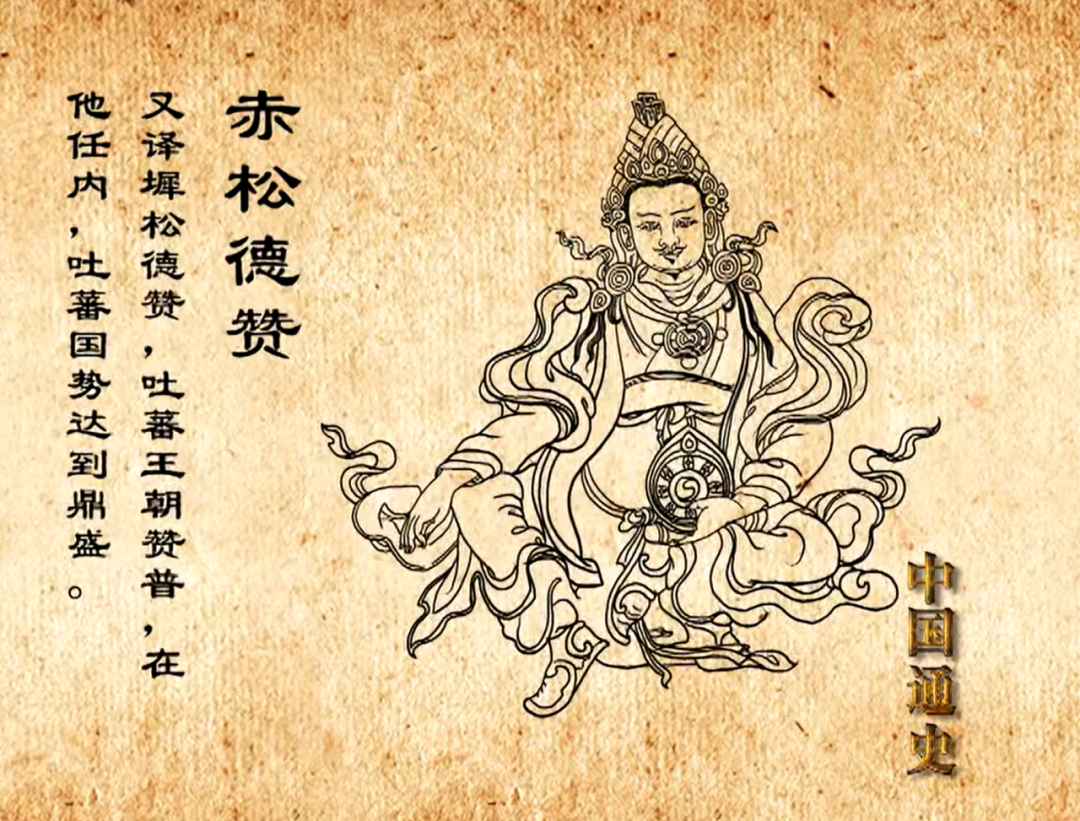 赤松德赞
又译墀松德赞，吐蕃王朝赞普，在
他任内，吐蕃国势达到鼎盛。
中国通史